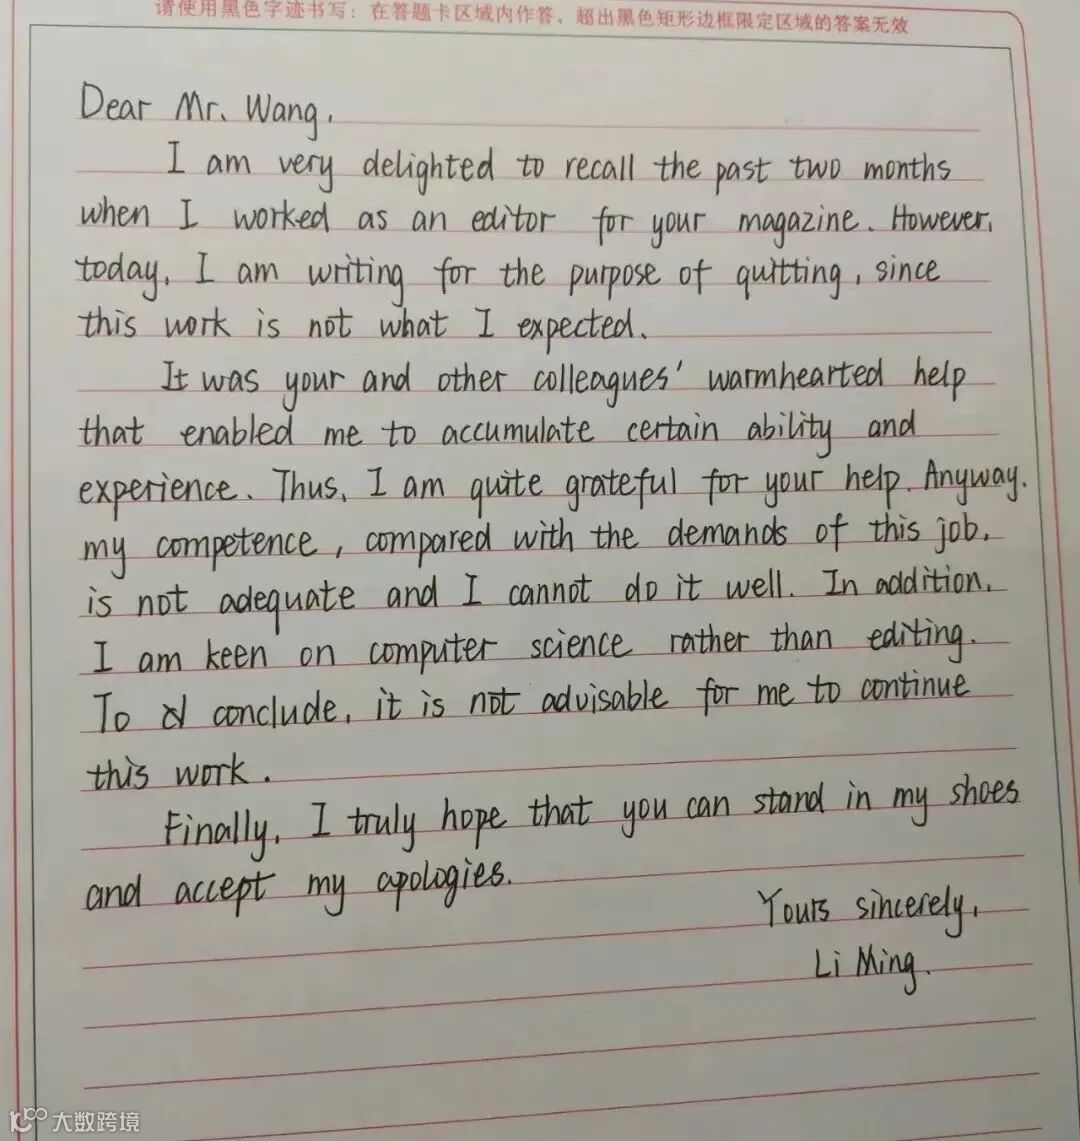 请使用黑色字迹书写：在答题卡区域内作答，超出黑色矩形边框限定区域的答案无效
Dear Mr. Wang,
I am very delighted to recall the past two months
when I worked as an editor for your magazine. However,
today, I am writing for the purpose of quitting, since
this work is not what I expected.
It was your and other colleagues' warmhearted help
that enabled me to accumulate certain ability and
experience. Thus, I am quite grateful for your help. Anyway,
my competence, compared with the demands of this job,
is not adequate and I cannot do it well. In addition,
I am keen on computer science rather than editing.
To conclude, it is not advisable for me to continue
this work.
Finally, I truly hope that you can stand in my shoes
and accept my apologies.
Yours sincerely,
Li Ming.
大数跨境